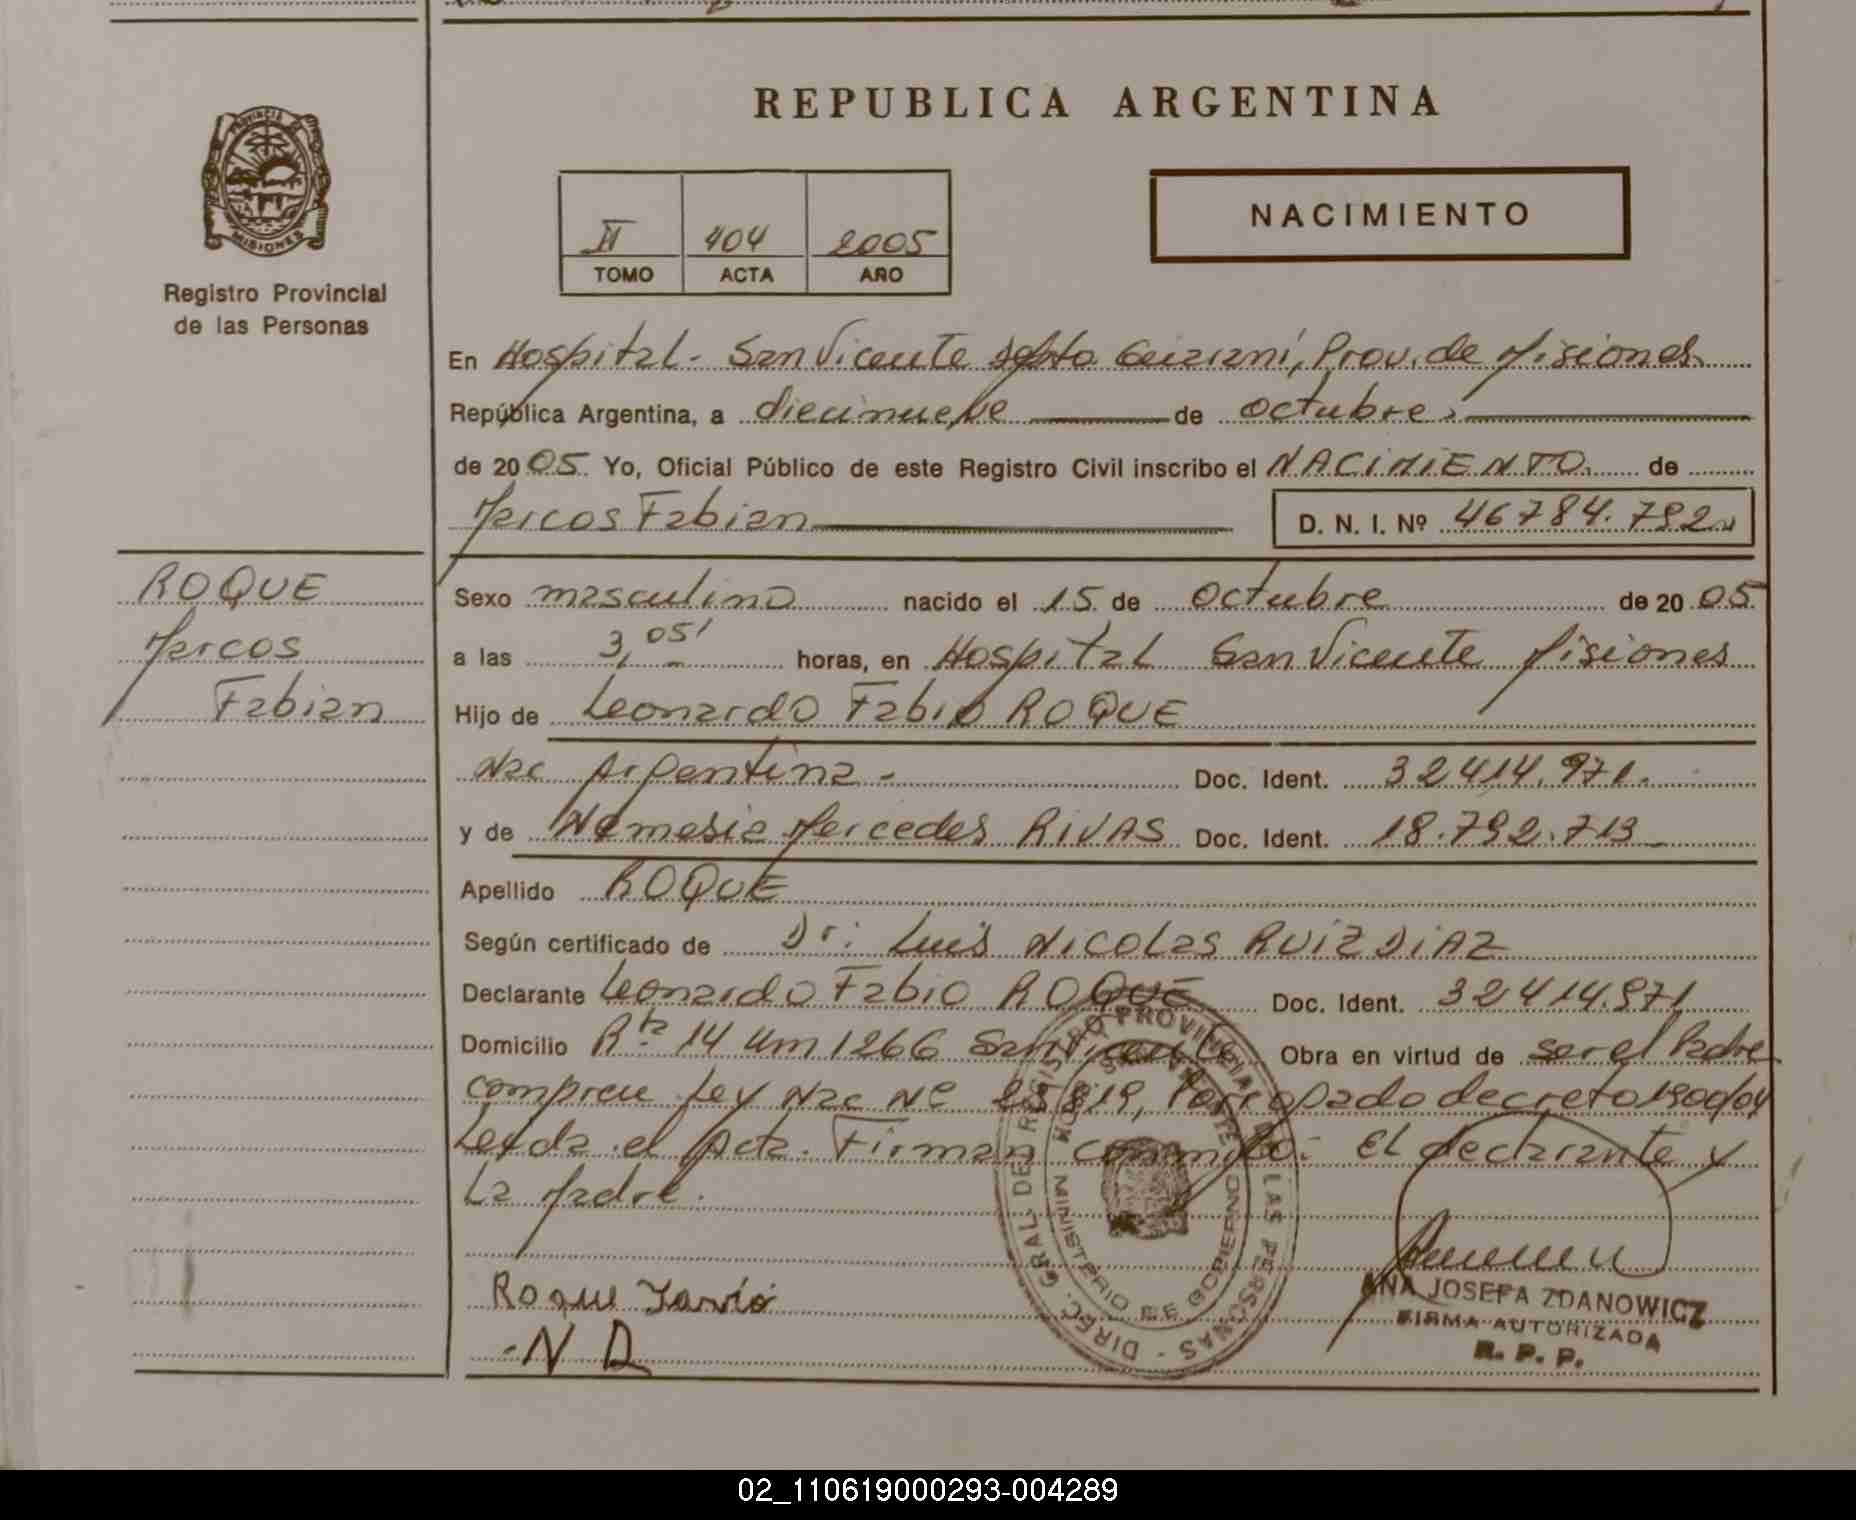 REPUBLICA ARGENTINA
PROVINCIA DE MISIONES
Registro Provincial
de las Personas
II 404 2005
TOMO ACTA AÑO
NACIMIENTO
En Hospital - San Vicente depto Guaraní, Prov. de Misiones
República Argentina, a diecinueve de octubre
de 2005 Yo, Oficial Público de este Registro Civil inscribo el NACIMIENTO de
Marcos Fabian D. N. I. Nº 46784.792
ROQUE
Marcos
Fabian
Sexo masculino nacido el 15 de Octubre de 2005
a las 3,05' horas, en Hospital San Vicente Misiones
Hijo de Leonardo Fabio ROQUE
Nac Argentina - Doc. Ident. 32414.971.
y de Nemesia Mercedes RIVAS Doc. Ident. 18.792.713
Apellido ROQUE
Según certificado de Dr: Luis Nicolas RUIZ DIAZ
Declarante Leonardo Fabio ROQUE Doc. Ident. 32414.971
Domicilio Rta 14 Km 1266 San Vicente Obra en virtud de ser el Padre
Ley Nac Nº 25819, decreto 1900/04
Leyda el Acta. Firman conmigo: El declarante y
La Madre.
Roque Favio
- N R
DIREC. GRAL. DE REGISTRO PROVINCIAL DE LAS PERSONAS -
MINISTERIO DE GOBIERNO
ANA JOSEFA ZDANOWICZ
FIRMA AUTORIZADA
R. P. P.
02_110619000293-004289